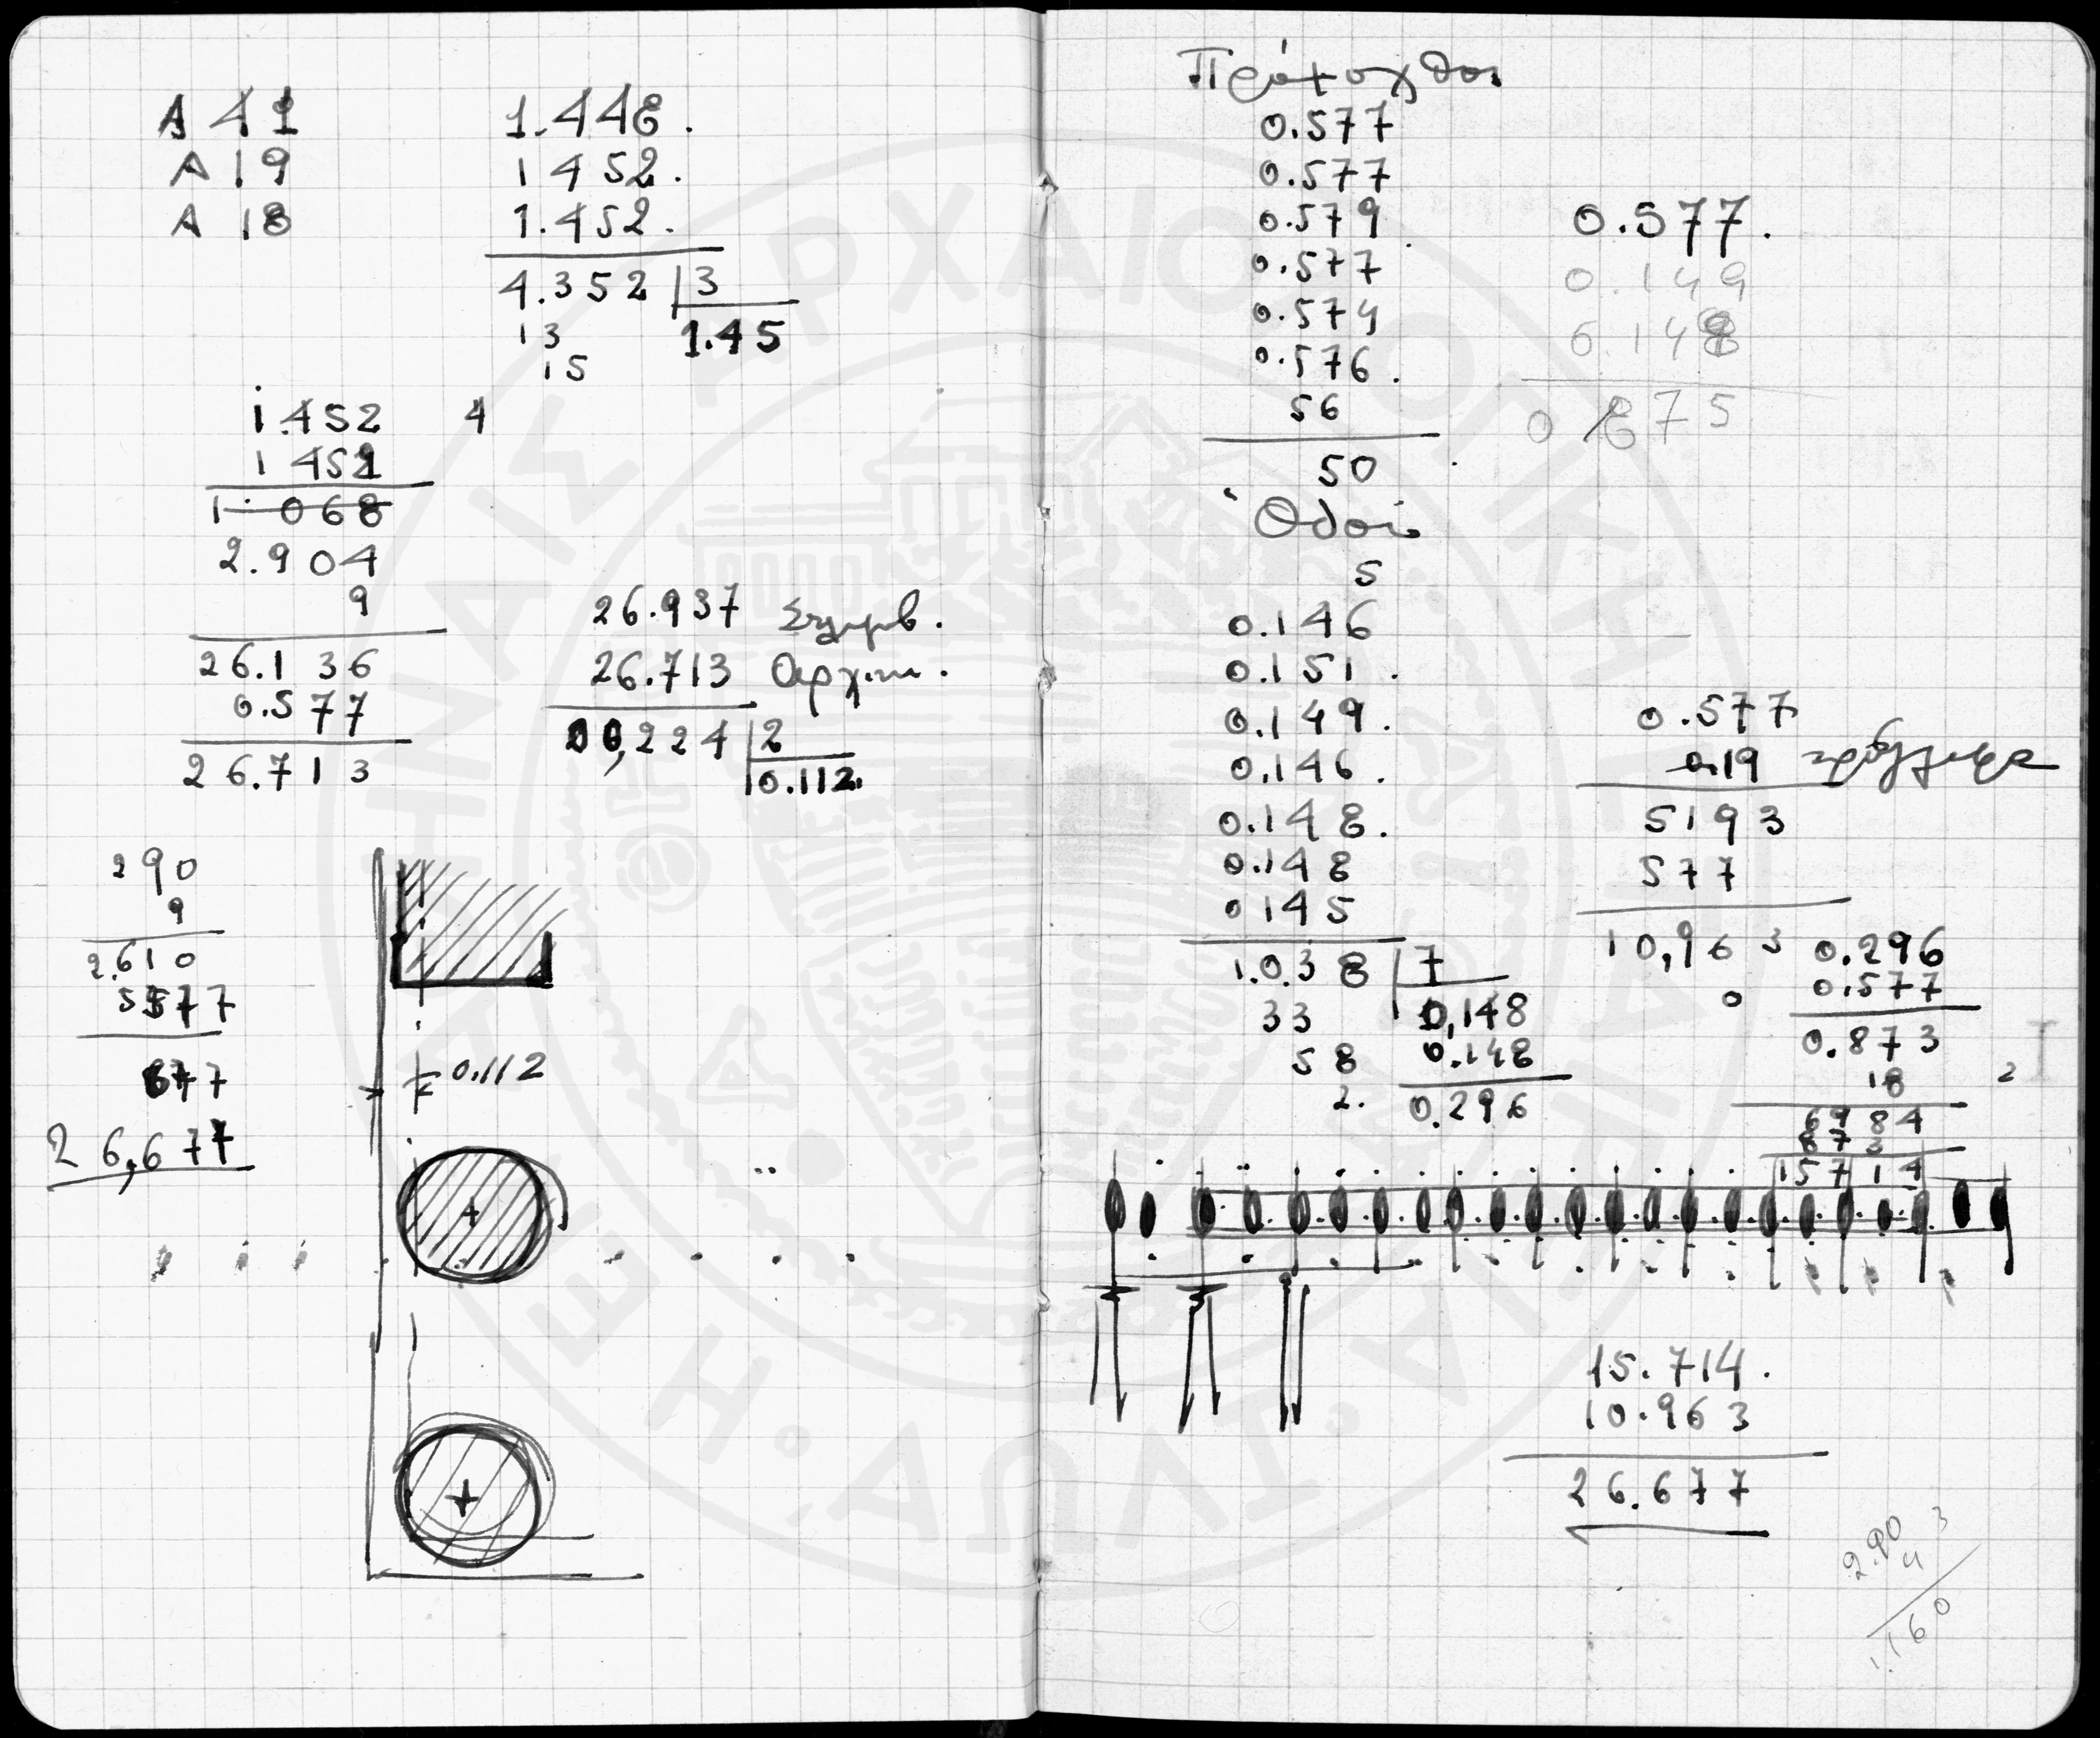 A 41 1.448.
A 19 1 452.
A 18 1.452.
4.352 3
13 1.45
15
1.452 4
1 452
1 068
2.904
9
26.1 36
0.577
26.713
26.937
26.713
00,224 2
0.112.
290
9
2.610
577
677
26,677
0.112
0.577
0.577
0.579
0.577
0.574
0.576.
56
50
Ὁδοί
5
0.146
0.151.
0.149.
0.146.
0.148.
0.148
0 145
1.0.38 7
33 0,148
58 0.148
2. 0.296
0.577.
0.149
0.149
0 875
0.577
0.19
5193
577
10,963
0
0.296
0.577
0.873
18 2
6984
873
15714
15.714.
10.963
26.677
2.90 3
4
1.160
ΕΝ ΑΘΗΝΑΙΣ ΑΡΧΑΙΟΛΟΓΙΚΗ ΕΤΑΙΡΕΙΑ